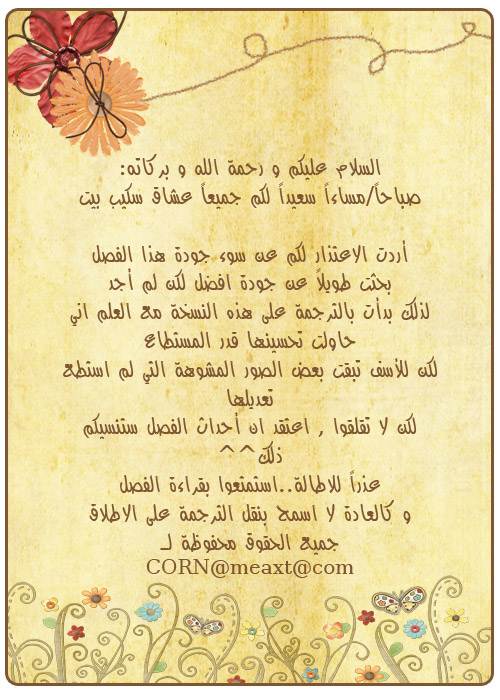 السلام عليكم و رحمة الله و بركاته:
صباحاً/مساءاً سعيداً لكم جميعاً عشاق سكيب بيت
أردت الاعتذار لكم عن سوء جودة هذا الفصل
بحثت طويلاً عن جودة افضل لكن لم أجد
لذلك بدأت بالترجمة على هذه النسخة مع العلم اني
حاولت تحسينها قدر المستطاع
لكن للأسف تبقت بعض الصور المشوهة التي لم استطع
تعديلها
لكن لا تقلقوا , اعتقد ان أحداث الفصل ستنسيكم
ذلك^^
عذراً للاطالة..استمتعوا بقراءة الفصل
و كالعادة لا اسمح بنقل الترجمة على الاطلاق
جميع الحقوق محفوظة لـ
CORN@meaxt@com